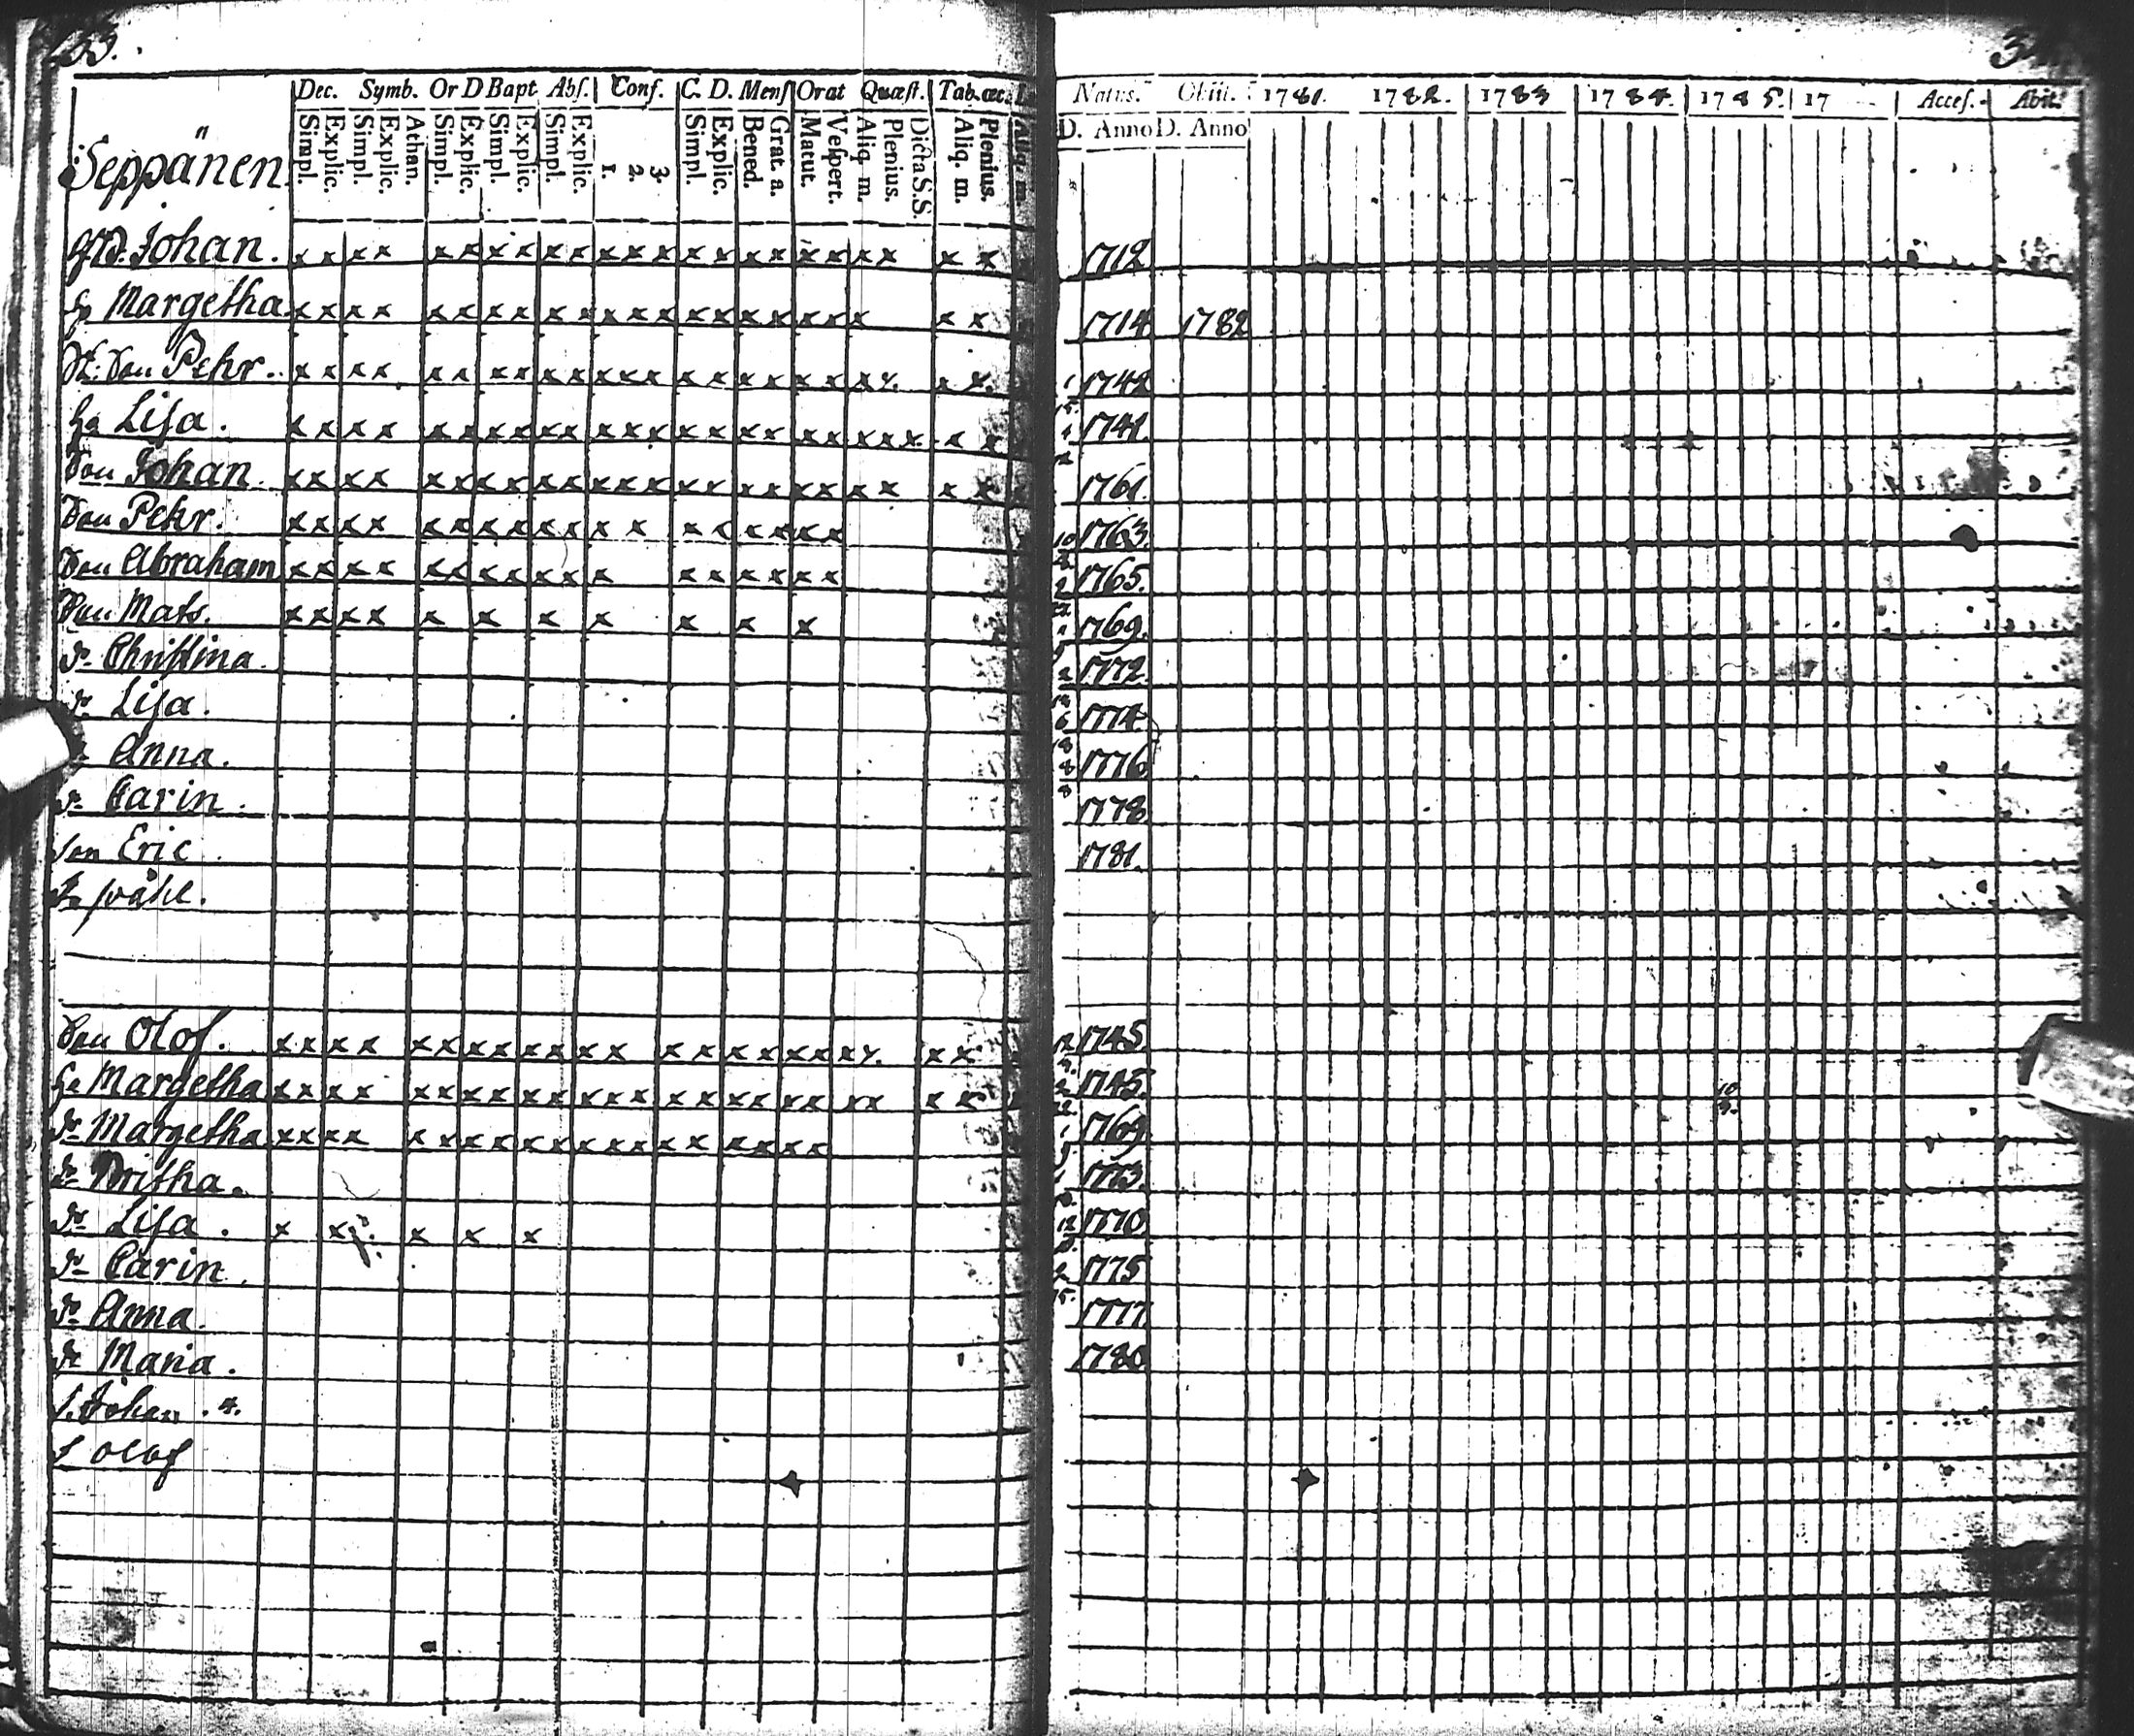 Dec. Symb. Or D Bapt Abſ. Conf. C. D. Menſ Orat Quæſt. Tab. œc.
Simpl. Explic. Simpl. Explic. Athan. Simpl. Explic. Simpl. Explic. Simpl. Explic. 1. 2. 3. Simpl. Explic. Bened. Grat. a. Matut. Veſpert. Aliq. m Plenius. Dicta S.S. Aliq. m. Plenius.
Natus. Obiit. 1781. 1782. 1783 1784. 1785. 17 Acceſ. Abit.
D. Anno D. Anno
Seppänen
Johan. x x x x x x x x x x x x x x x x x x x x x x x 1712
Margetha x x x x x x x x x x x x x x x x x x x x x x 1714 1782
Son Pehr. x x x x x x x x x x x x x x x x x x x x x x x 1742
Liſa. x x x x x x x x x x x x x x x x x x x x x x x x 1741.
Son Johan x x x x x x x x x x x x x x x x x x x x x x x 1761.
Son Pehr. x x x x x x x x x x x x x x x x x x 10 1763.
Son Abraham x x x x x x x x x x x x x x x x x 1765.
Son Mats. x x x x x x x x x x x 1769.
Chriſtina. 1772.
Liſa. 1774.
Anna. 1776
Carin. 1778.
Son Eric. 1781.
Son Olof. x x x x x x x x x x x x x x x x x x x x x x 12 1745.
Margetha x x x x x x x x x x x x x x x x x x x x x x x 1745. 10
Dr Margetha x x x x x x x x x x x x x x x x x x x 1769.
Dr Britha. 1773.
Dr Liſa. x x x x x 12 1770
Dr Carin. 1775
Dr Anna. 1777
Dr Maria. 1780.
S. Johan.
S Olof